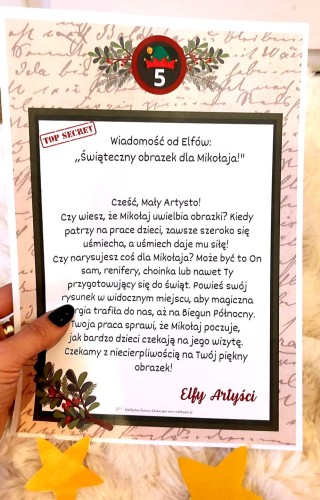 5
TOP SECRET
Wiadomość od Elfów:
„Świąteczny obrazek dla Mikołaja!"
Cześć, Mały Artysto!
Czy wiesz, że Mikołaj uwielbia obrazki? Kiedy
patrzy na prace dzieci, zawsze szeroko się
uśmiecha, a uśmiech daje mu siłę!
Czy narysujesz coś dla Mikołaja? Może być to On
sam, renifery, choinka lub nawet Ty
przygotowujący się do świąt. Powieś swój
rysunek w widocznym miejscu, aby magiczna
rgia trafiła do nas, aż na Biegun Północny.
Twoja praca sprawi, że Mikołaj poczuje,
jak bardzo dzieci czekają na jego wizytę.
Czekamy z niecierpliwością na Twój piękny
obrazek!
Elfy Artyści